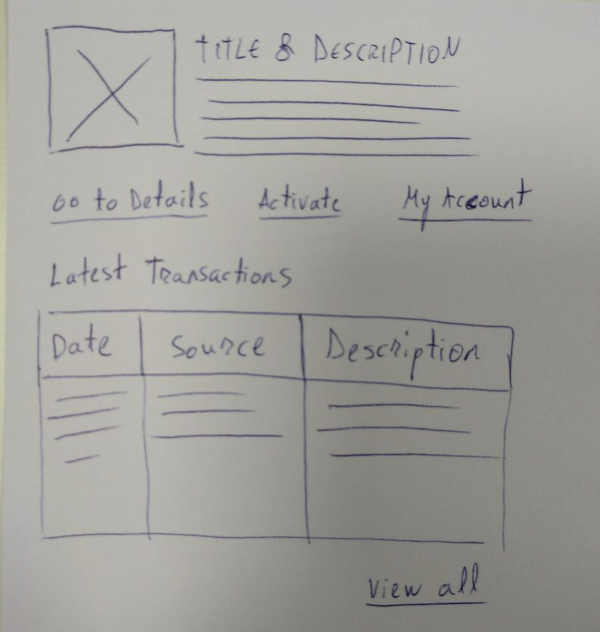 TITLE & DESCRIPTION
Go to Details Activate My Account
Latest Transactions
Date Source Description
View all